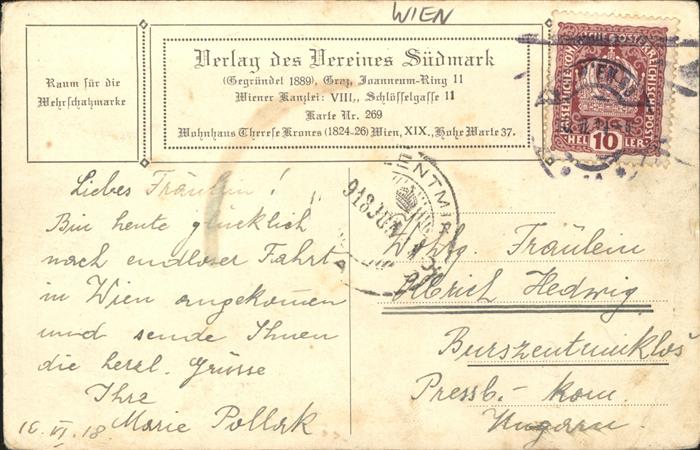 WIEN
Verlag des Vereines Südmark
(Gegründet 1889), Graz, Joanneum-Ring 11
Wiener Kanzlei: VIII., Schlösselgasse 11
Karte Nr. 269
Wohnhaus Therese Krones (1824-26) Wien, XIX., Hohe Warte 37.
Raum für die
Wehrschatzmarke
KAISERLICHE KÖNIGLICHE ÖSTERREICHISCHE POST
HEL 10 LER
WIEN
918 JUN
Liebes Fräulein!
Bin heute glücklich
nach endloser Fahrt
in Wien angekommen
und sende Ihnen
die herzl. Grüsse
Ihre
Marie Pollak
16. VI. 18.
Fräulein
Ulbrich Hedwig
Burszentmiklós
Pressb.- kom.
Ungarn.